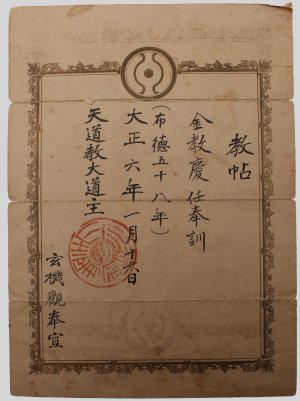 教帖
金教慶任奉訓
(布德五十八年)
大正六年一月十六日
天道教大道主
玄機觀奉宣